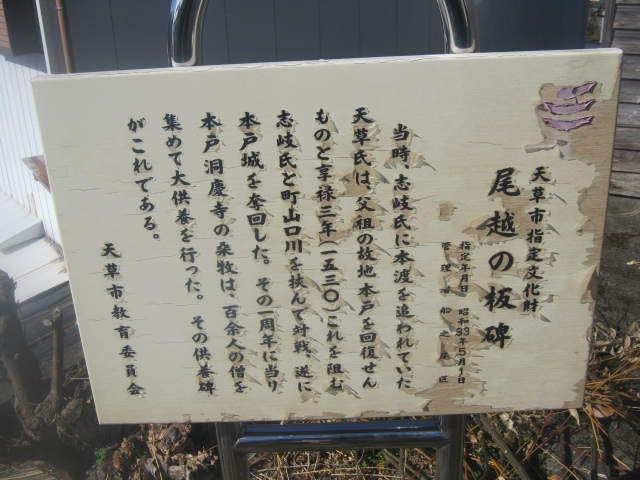 天草市指定文化財
尾越の板碑
指定年月日 昭和33年5月1日
管理 船之尾区
当時、志岐氏に本渡を追われていた
天草氏は、父祖の故地本戸を回復せん
ものと享禄三年(一五三〇)これを阻む
志岐氏と町山口川を挟んで対戦、遂に
本戸城を奪回した。その一周年に当り
本戸洞慶寺の桑牧は、百余人の僧を
集めて大供養を行った。 その供養碑
がこれである。
天草市教育委員会